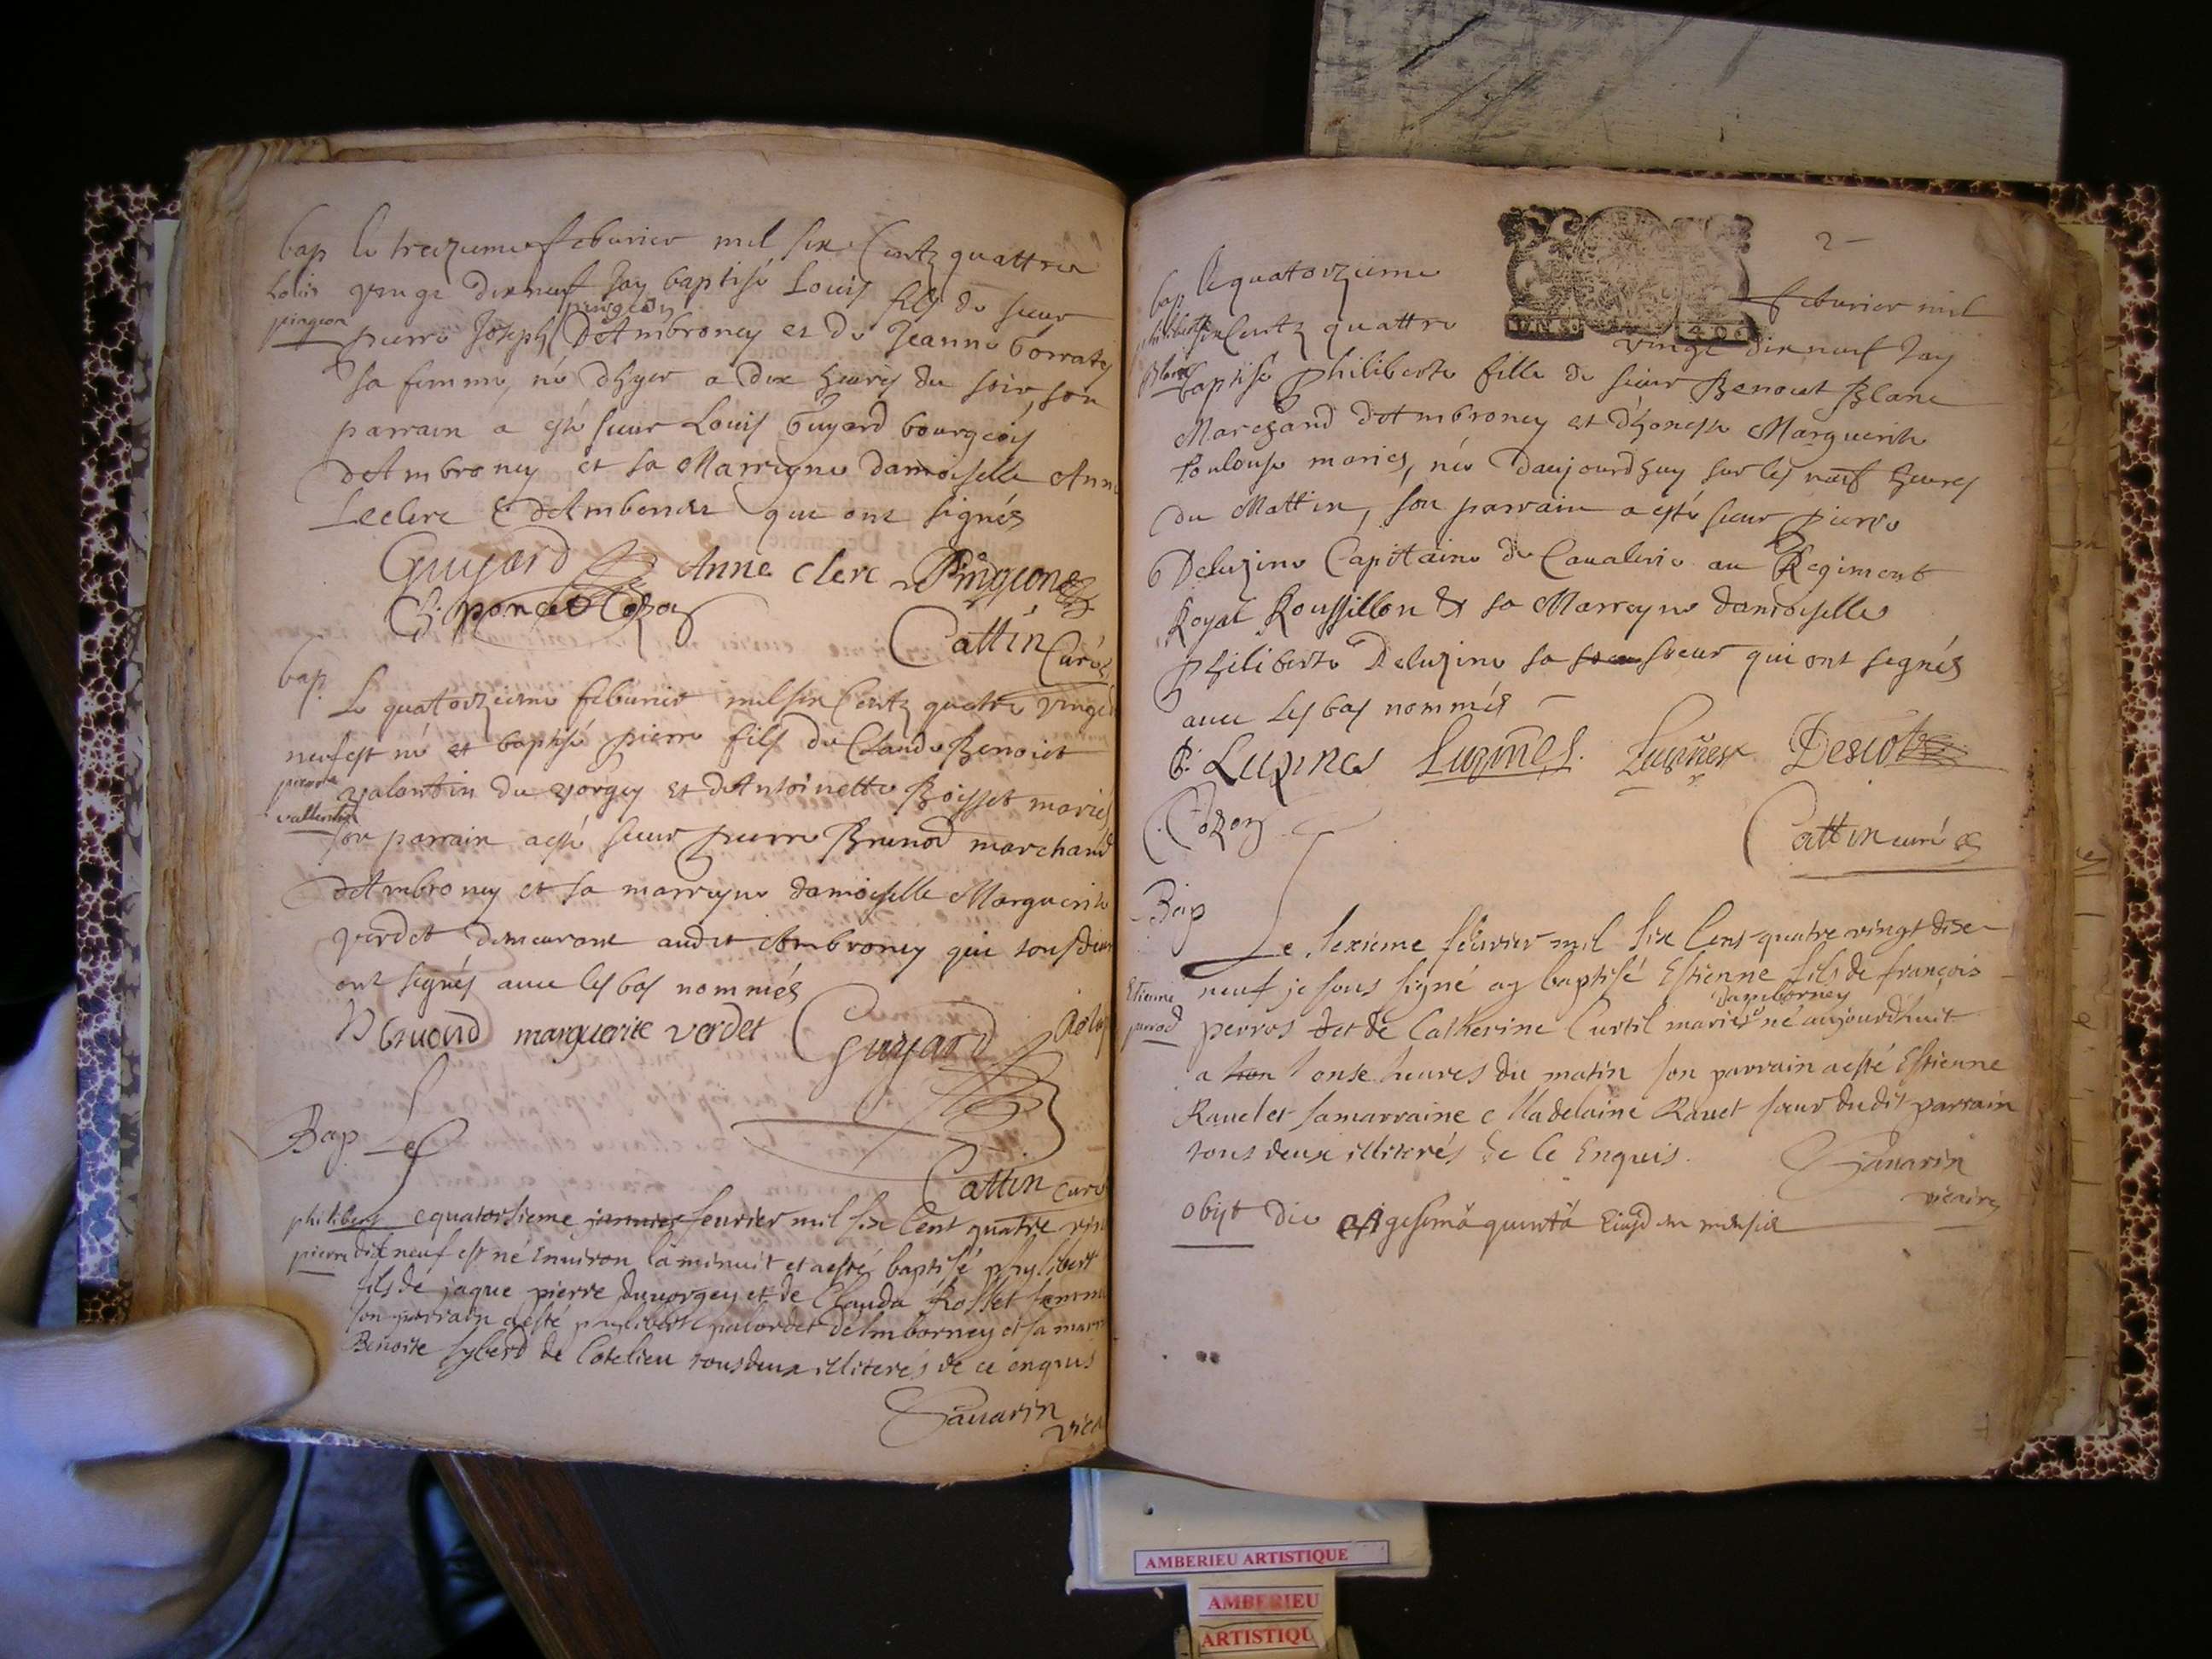 bap le treizieme feburier mil six Centz quattre
Louis vingt dixneuf Jay baptisé Louis fils de sieur
pingeon
pingeon
pierre Joseph D'Ambroney et de Jeanne
sa femme, né dhyer a dix heures du soir, son
parrain a esté sieur Louis Guyard bourgeois
d'Ambroney et sa Marreyne damoiselle Anne
Leclerc d'Ambronay qui ont signés
Guyard Anne clerc Pingeon
poncet Cozon
Cattin Curé
bap
Le quatorzieme feburier mil six Centz quatre vingt
neuf est né et baptisé pierre fils de Claude Benoist
pierre
valantin du vorgey et d'Antoinette Boisset mariés
vallentin
son parrain a esté sieur pierre Brunod marchand
d'Ambroney et sa marreyne damoiselle Marguerite
verdet demeurant audit Ambroney qui tous deux
ont signés avec les bas nommés
P bruond marguerite verdet Guyard
Cattin curé
Bap Le
philibert quatorsieme janvier feurier mil six Cent quatre vin
pierre dix neuf est né Enuiron la minuit et a esté baptisé phylibert
fils de jaque pierre du vorgey et de Clauda Rosset femme
son parrain a esté phylibert palordet d'Amborney et sa marr
Benoite syberd de Cotelieu tous deux illiterés de ce enquis
Sauarin
vica
2
bap le quatorzieme feburier mil
philiberte six Centz quattre vingt dix neuf Jay
Blanc
baptisé philiberte fille de sieur Benoist Blanc
Marchand d'Ambroney et d'honeste Marguerite
Toulouse mariés, née daujourdhuy sur les neuf heures
du Mattin, son parrain a esté sieur pierre
Deluzine Capitaine de Caualerie au Regiment
Royal Roussillon & sa Marreyne damoiselle
philiberte Deluzine sa soeur soeur qui ont segnés
avec les bas nommés
P. Luzines Luzines. Luzines Descot
C. Cozon
Cattin curé
Bap
Le sexieme feurier mil six Cens quatre vingt dise
Etienne neuf je sous signé ay baptisé Estienne fils de françois
damborney
perrod perros det de Catherine Curtil mariés né aujourdhuit
a onse heures du matin son parrain a esté Estienne
Rauet et sa marraine Madelaine Rauet soeur dudit parrain
tous deux illiterés de ce Enquis.
Sauarin
vicaire
obijt die vigesimâ quintâ Eiusdem mensis
AMBERIEU ARTISTIQUE
AMBERIEU
ARTISTIQU